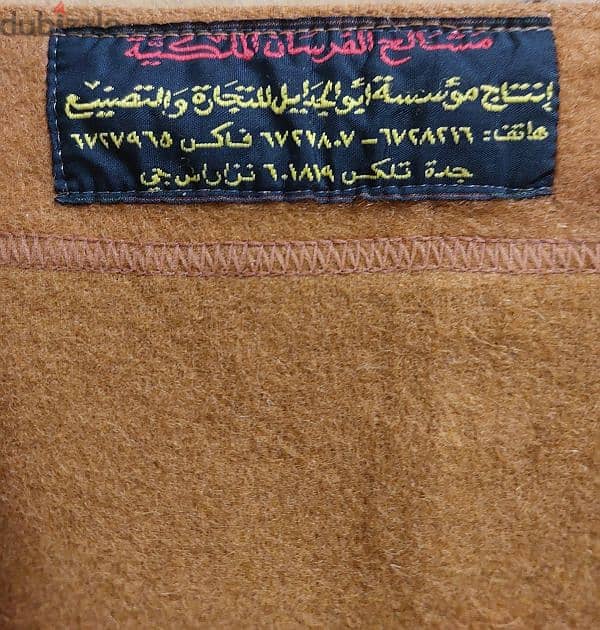 dubizzle
مشالح الفرسان الملكية
إنتاج مؤسسة أبو الجدايل للتجارة والتصنيع
هاتف: ٦٧٢٨٢١٦ - ٦٧٢٧٨٠٧ فاكس ٦٧٢٧٩٦٥
جدة تلكس ٦٠١٨١٩ نزاراس جي